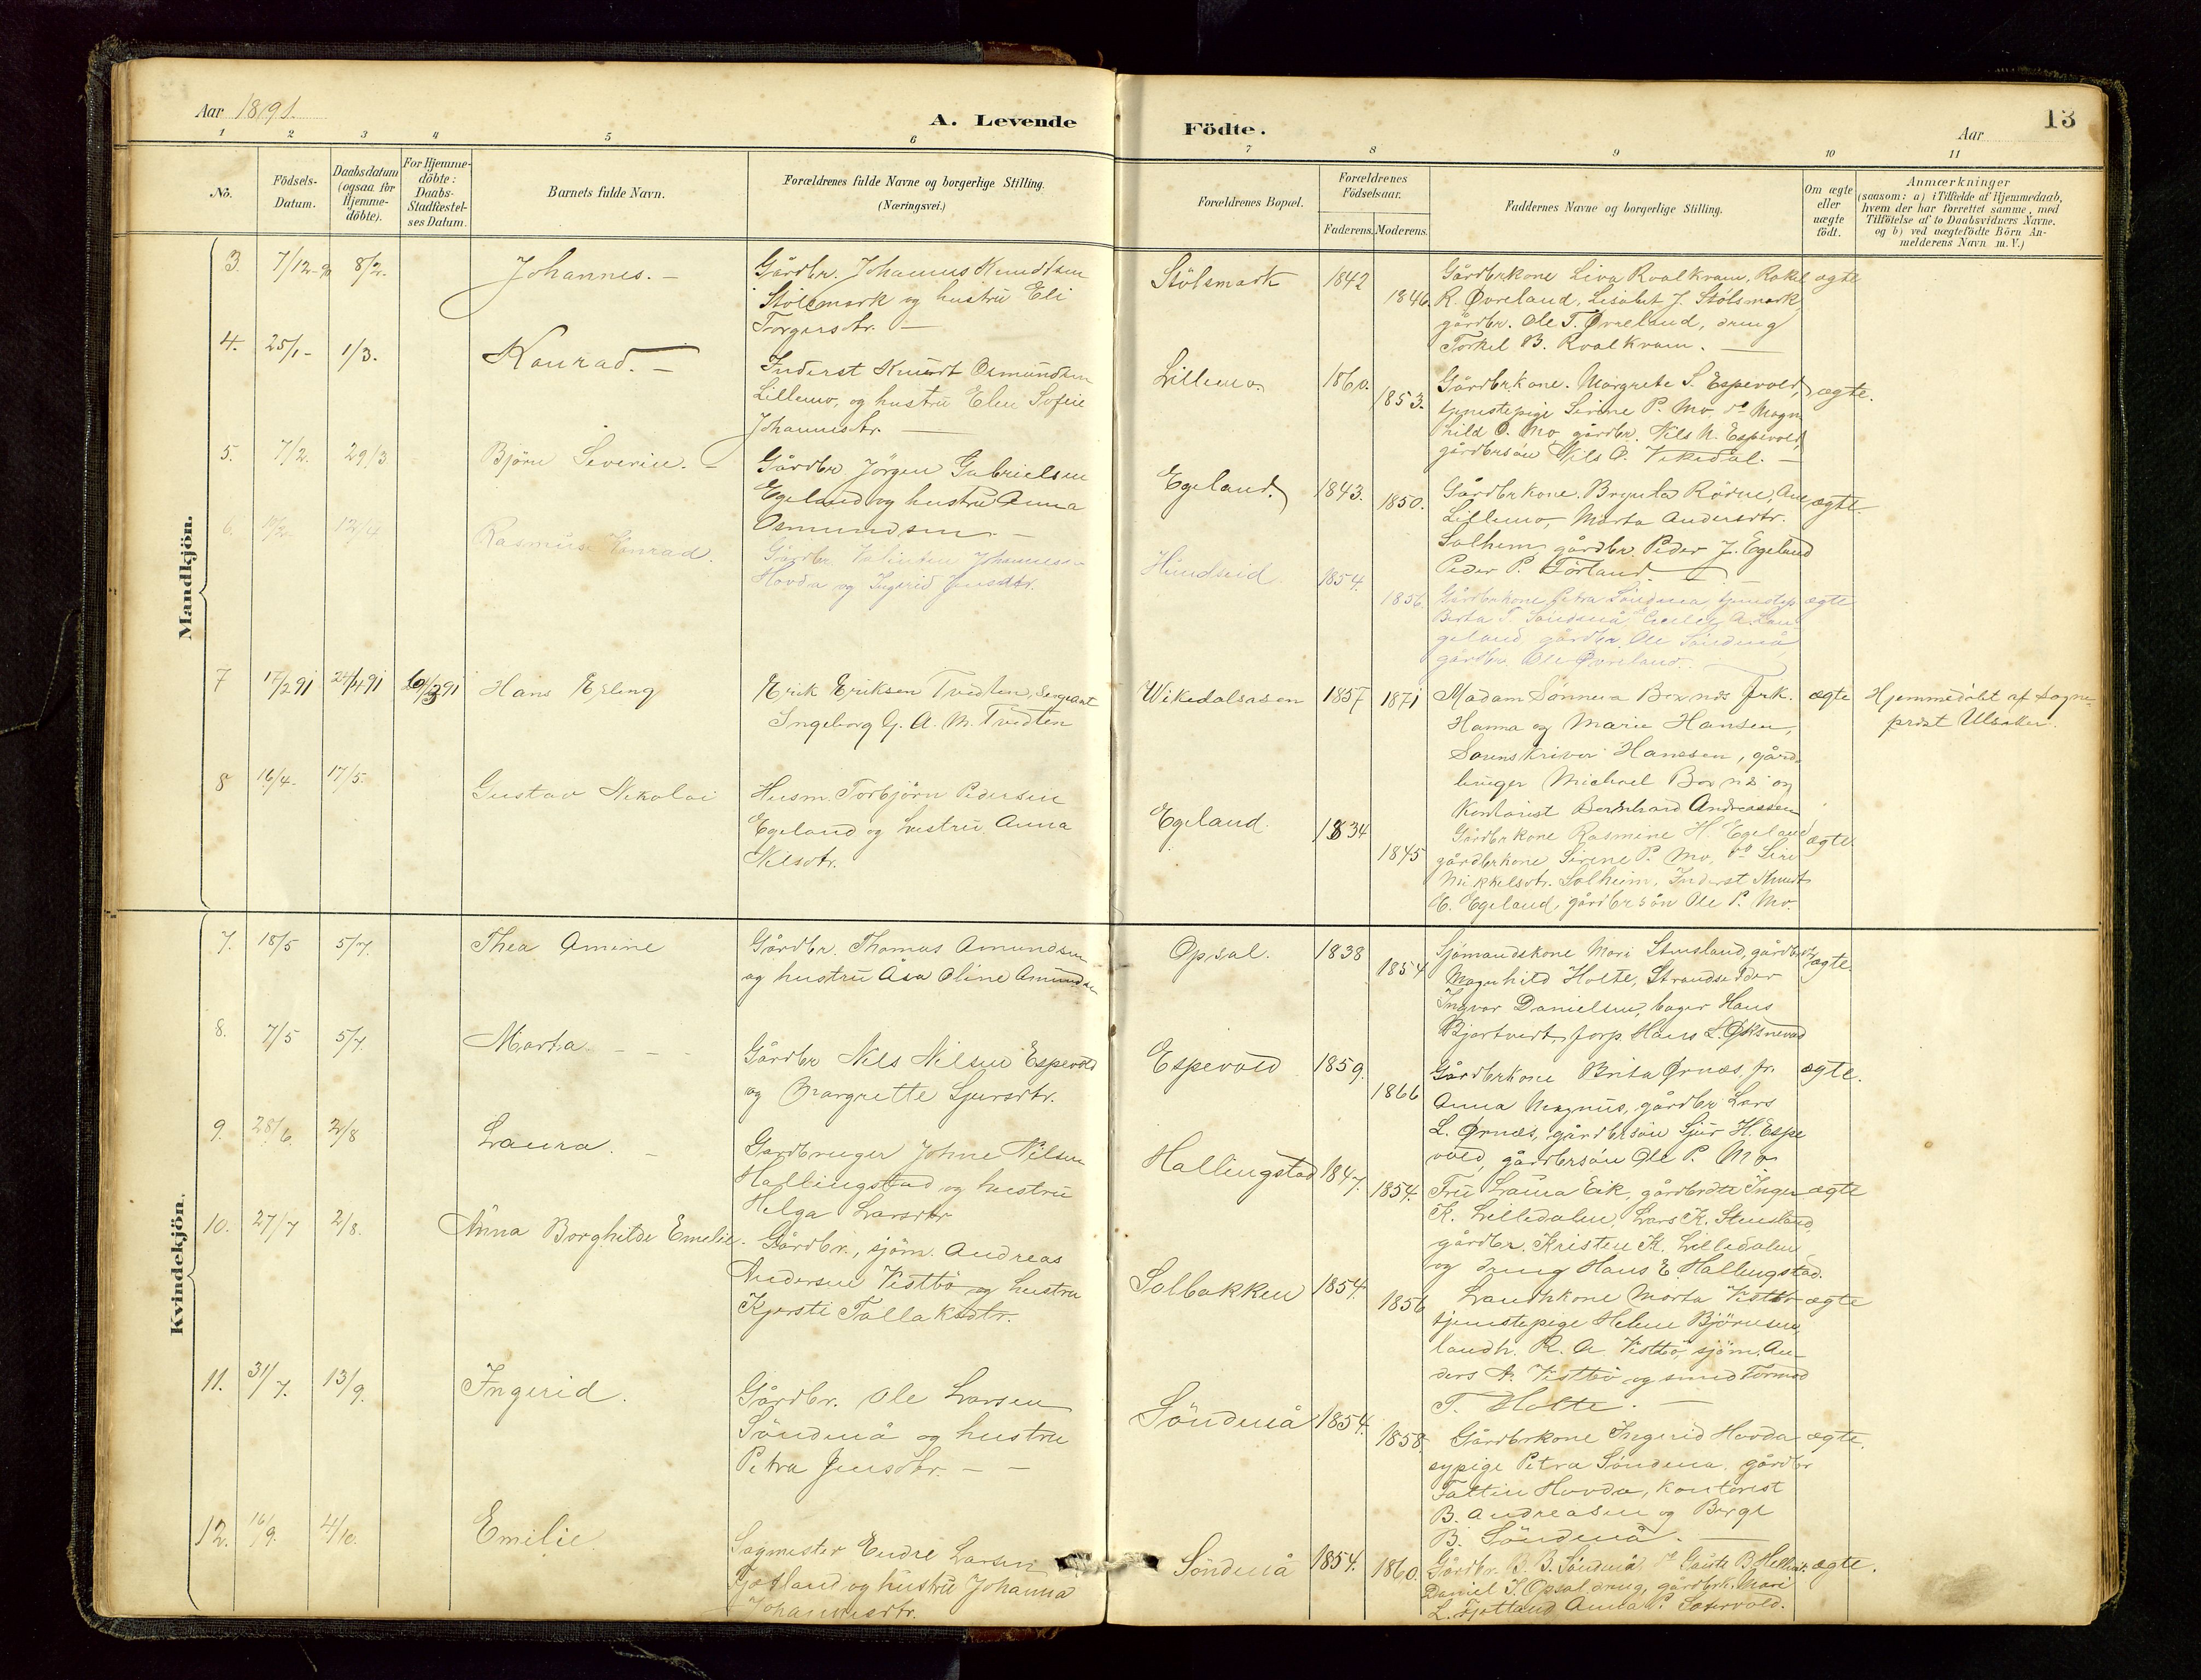 Aar 1891.
A. Levende
Födte.
Aar
13
1 2 3 4 5 6 7 8 9 10 11
No.
Födsels-Datum.
Daabsdatum (ogsaa for Hjemme-döbte).
For Hjemme-döbte: Daabs-Stadfæstel-ses Datum.
Barnets fulde Navn.
Forældrenes fulde Navne og borgerlige Stilling.
(Næringsvei.)
Forældrenes Bopæl.
Forældrenes Födselsaar.
Faderens. Moderens.
Faddernes Navne og borgerlige Stilling.
Om ægte eller uægte födt.
Anmærkninger
(saasom: a) i Tilfælde af Hjemmedaab,
hvem der har forrettet samme, med
Tilföielse af to Daabsvidners Navne.
og b) ved uægtefödte Börn An-
melderens Navn m. V.)
Mandkjön.
3. 7/12-90 8/2. Johannes. –
Gårdbr. Johannes Knudtsen
Stölsmark og hustru Eli
Torgersdtr. –
Stölsmark 1842 1846.
Gårdbrkone Liva Roalkvam, Rakel
R. Øvreland, Lisabet J. Stölsmark
gårdbr. Ole T. Øvreland, dreng
Torkel B. Roalkvam. –
ægte
4. 25/1- 1/3. Konrad. –
Inderst Knudt Osmundsen
Lillemo, og hustru Elen Sofie
Johannesdtr. –
Lillemo. 1860. 1853.
Gårdbrkone. Margrete S. Espevold,
tjenestepige Sirene P. Mo, do Magn
hild O. Mo, gårdbr. Nils N. Espevold,
gårdbrsön Nils O. Vikedal. –
ægte.
5. 7/2. 29/3 Björn Severin. –
Gårdbr Jörgen Gabrielsen
Egeland og hustru Anna
Osmundsen. –
Egeland. 1843. 1850.
Gårdbrkone. Brynla Rödne, Ane
Lillemo, Marta Andersdtr.
Solheim, gårdbr. Peder J. Egeland
Peder P. Törland. –
ægte.
6. 12/4 Rasmus Konrad.
Gårdbr. Johannesen
Hovda og Ingerid Jensdtr.
Hundseid 1854. 1856.
Gårdbrkone Petra Söndenå, tjenestep.
Berta T. Söndenå
geland, gårdbr. Ole Söndenå
gårdbr. Ole Øvreland.
ægte
7 17/2 91 24/4 91 Hans Erling
Erik Eriksen Tvedten, Sergeant
Ingeborg G. A. M. Tvedten
Wikedalsåsen 1857 1871
Madam Sönneva Boxnæs Frk.
Hanna og Marie Hansen,
Sorenskriver Hanssen, gård-
bruger Michael Boxnæs og
Kontorist Bernhard Andreassen
ægte
Hjemmedöbt af Sogne-
prest Ulsaker.
8 16/4. 17/5. Gustav Nikolai
Husm. Torbjörn Pedersen
Egeland og hustru Anna
Nilsdtr.
Egeland. 1834 1845
Gårdbrkone Rasmine H. Egeland
gårdbrkone Sirene P. Mo, do Siri
Mikkelsdtr. Solheim, Inderst Knudt
E. Egeland, gårdbrsön Ole P. Mo.
ægte.
Kvindekjön.
7. 18/5 5/7. Thea Amine
Gårdbr. Thomas Amundsen
og hustru Åsa Oline Amundsen
Opsal. 1838 1854
Sjömandskone Mari Stensland, gårdbr
Magnhild Holte, Strandsidder
Ingvar Danielsen, bager Hans
Bjortvedt, forp. Hans L. Øksnevad
ægte.
8. 7/5 5/7. Marta. – –
Gårdbr Nils Nilsen Espevold
og Margrette Sjursdtr.
Espevold 1859. 1866
Gårdbrkone Brita Ørnæs, fr.
Anna Magnus, gårdbr Lars
L. Ørnæs, gårdbrsön Sjur H. Espe
vold, gårdbrsön Ole P. Mo
ægte.
9. 28/6. 2/8 Laura. –
Gardbruger Johne Nilsen
Hallingstad og hustru
Helga Larsdtr
Hallingstad 1847. 1854.
Fru Laura Eik, gårdbrdtr Inger
K. Lilledalen, Lars K. Stensland,
gårdbr. Kristen K. Lilledalen,
og dreng Hans E. Hallingstad.
ægte
10. 27/7 2/8. Anna Borghilde Emelie.
Gårdbr., sjöm. Andreas
Andersen Vistbö og hustru
Kjersti Tallaksdtr.
Solbakken 1854. 1856
Landhkone Marta Vistbö
tjenestepige Helene Björnsen,
landh. R. A. Vistbö, sjöm. An-
ders A. Vistbö og smed Tormod
T. Holte. –
ægte
11. 31/7. 13/9. Ingerid.
Gårdbr. Ole Larsen
Söndenå og hustru
Petra Jensdtr. – –
Söndenå 1854. 1858.
Gårdbrkone Ingerid Hovda
sypige Petra Söndenå, gårdbr
Faltin Hovda, Kontorist
B. Andreasen og Berge
B. Söndenå. –
ægte.
12. 16/9. 4/10. Emilie.
Sagmester Endre Larsen
Fjotland og hustru Johanna
Johannesdtr.
Söndenå 1854. 1860.
Gårdbr. B. B. Söndenå, do Gaute B.
Daniel T. Opsal, dreng, gårdbrk. Mari
L. Fjotland Anna P. Sætervold.
ægte.